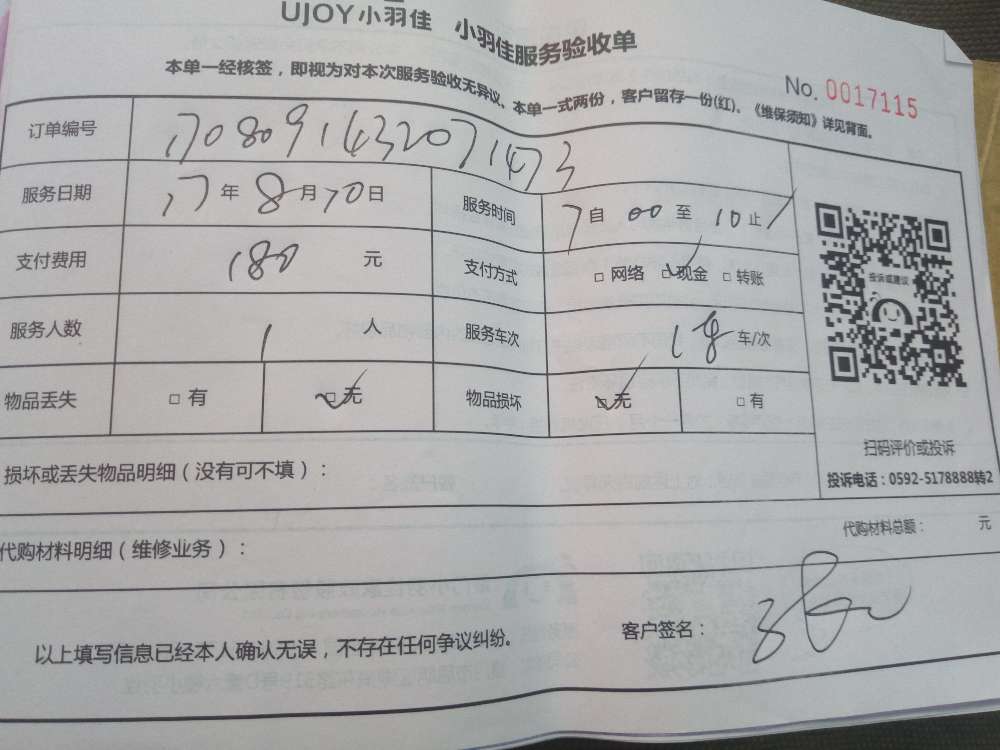 UJOY小羽佳 小羽佳服务验收单
本单一经核签，即视为对本次服务验收无异议、本单一式两份，客户留存一份(红)、《维保须知》详见背面。
No. 0017115
订单编号 1708091432071473
服务日期 17年8月10日 服务时间 7自00至10止
支付费用 180元 支付方式 □网络 □现金 □转账
服务人数 1人 服务车次 1 车/次
物品丢失 □有 □无 物品损坏 □无 □有
投诉或建议
扫码评价或投诉
投诉电话：0592-5178888转2
损坏或丢失物品明细（没有可不填）：
代购材料明细（维修业务）：
代购材料总额： 元
以上填写信息已经本人确认无误，不存在任何争议纠纷。
客户签名：